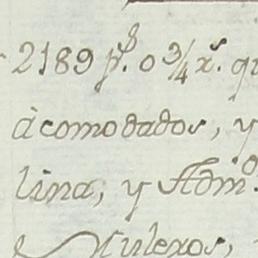 2189 p.s 0 3/4 r.s qu
àcomodados, y
lina, y Adm.o
Mulexos,